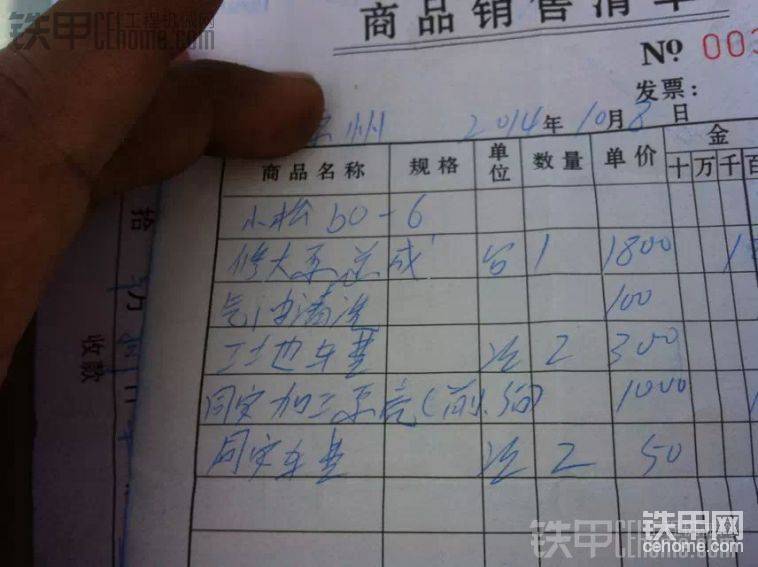 铁甲 工程机械网
商品销售清单
№ 003
发票:
州 2014年10月8日
商品名称 规格 单位 数量 单价 金
十 万 千 百
小松60-6
修大泵总成 台 1 1800 18
汽油清洗 100
工地车费 次 2 300
同安加工泵壳(前.后) 1000 1
同安车费 次 2 50
拾 万
收款
铁甲网
cehome.com
铁甲